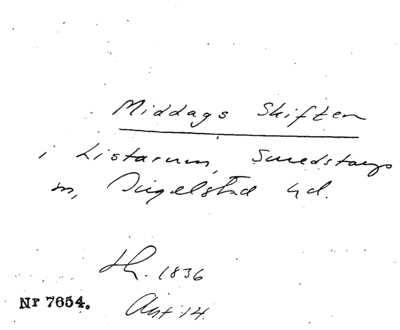 Middags Skiften
i Listarum, Smedstorps
sn, Ingelstad hd.
Lh. 1836
Nr 7654.
Akt 14